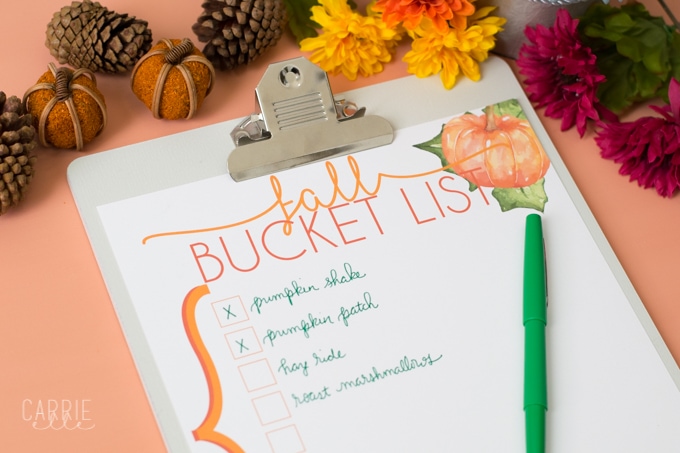 fall
BUCKET LIST
X pumpkin shake
X pumpkin patch
hay ride
roast marshmallows
CARRIE
elle